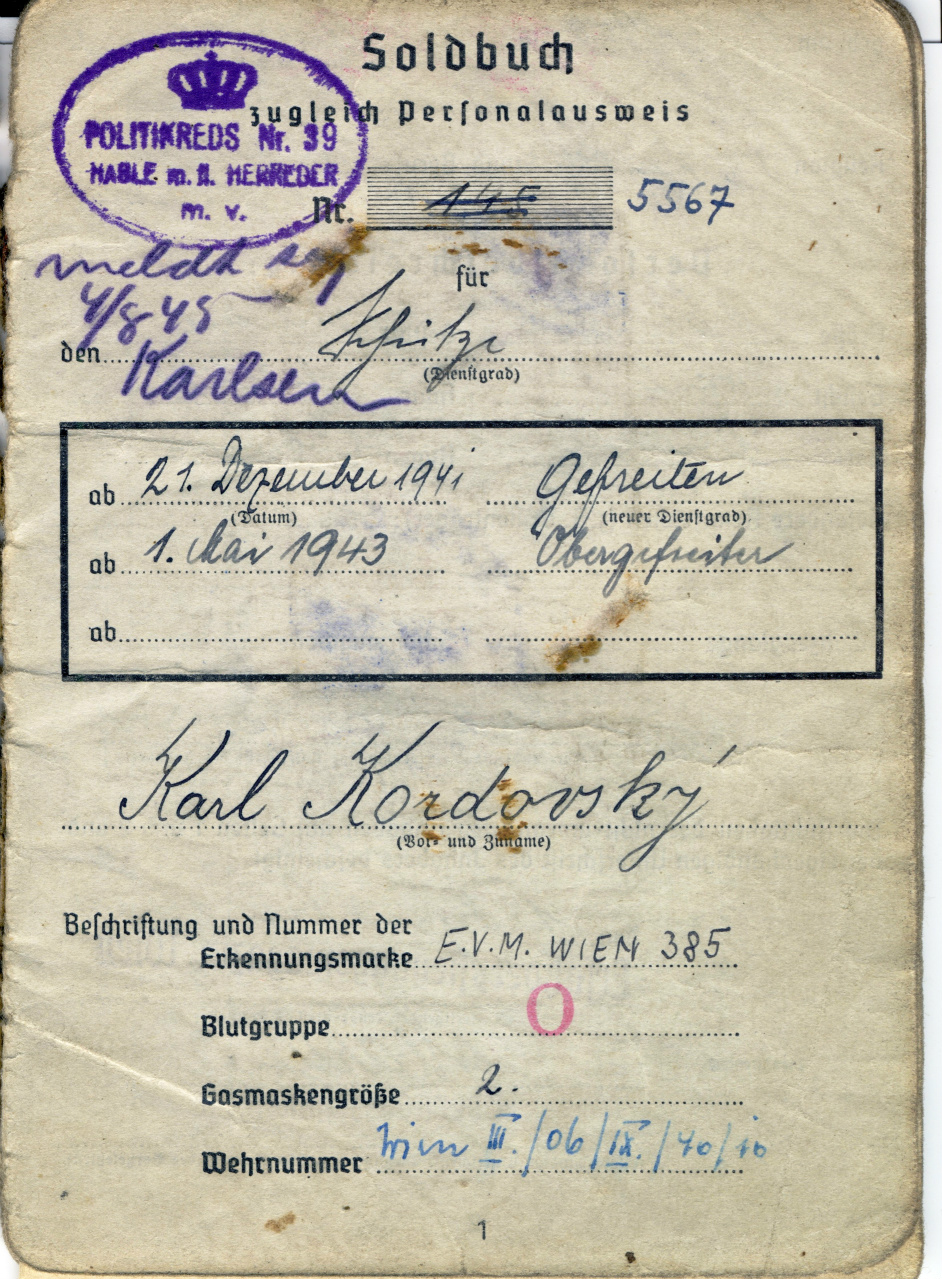 Soldbuch
zugleich Personalausweis
POLITIKREDS Nr. 39
HABLE m. fl. HERREDER
m. v.
Nr. 148 5567
meldt sig
4/8 45
Karlsen
für
den Schütze
(Dienstgrad)
ab 21. Dezember 1941 Gefreiten
(Datum) (neuer Dienstgrad)
ab 1. Mai 1943 Obergefreiter
ab
Karl Kordovský
(Vor- und Zuname)
Beschriftung und Nummer der
Erkennungsmarke E.V.M. WIEN 385
Blutgruppe O
Gasmaskengröße 2.
Wehrnummer Wien III./06/IX./40/10
1